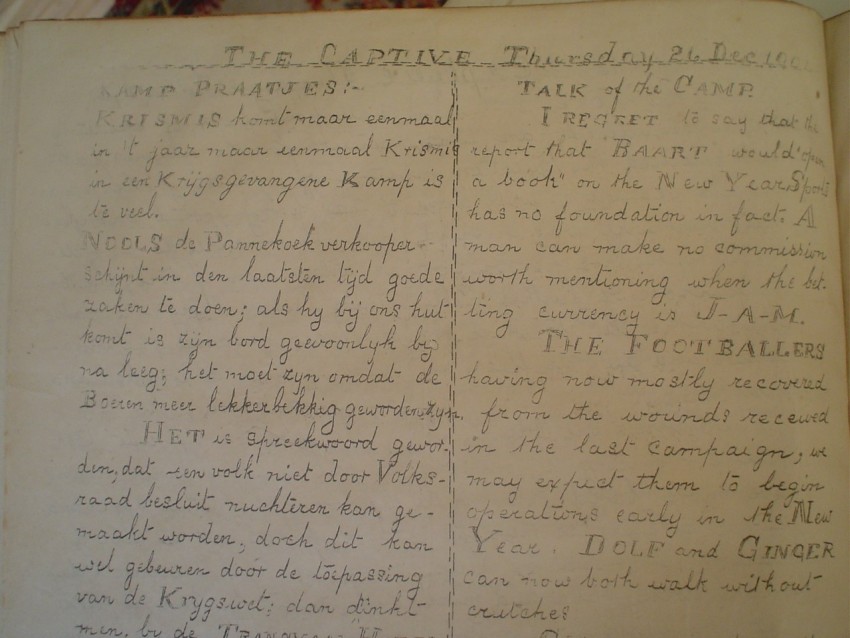 THE CAPTIVE Thursday 26 Dec 190
KAMP PRAATJES:-
KRISMIS komt maar eenmaal
in 't jaar maar eenmaal Krismis
in een Krijgsgevangene Kamp is
te veel.
NOOLS de Pannekoek verkooper
schijnt in den laatsten tijd goede
zaken te doen; als hy bij ons hut
komt is zijn bord gewoonlyk bij
na leeg; het moet zyn omdat de
Boeren meer lekkerbekkig geworden zyn.
HET is spreekwoord gewor-
den, dat een volk niet door Volks-
raad besluit nuchteren kan ge-
maakt worden; doch dit kan
wel gebeuren door de toepassing
van de Krygswet; dan drinkt
men, by de
TALK of the CAMP.
I REGRET to say that the
report that BAART would "open
a book" on the New Year Sports
has no foundation in fact: A
man can make no commission
worth mentioning when the bet-
ting currency is J-A-M.
THE FOOTBALLERS
having now mostly recovered
from the wounds received
in the last campaign, we
may expect them to begin
operations early in the New
Year. DOLF and GINGER
can now both walk without
crutches